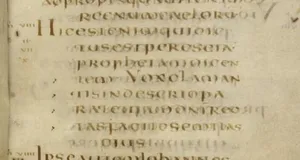 REGNUMCAELORU
HICESTENIMQUIDIC
TUSESTPERESEIA
PROPHETAMDICEN
TEM VOXCLAMAN
TISINDESERTOPA
RATEVIAMDNIREC
TASFACITESEMITAS
EIUS
IPSEAUTEMIOHANNES